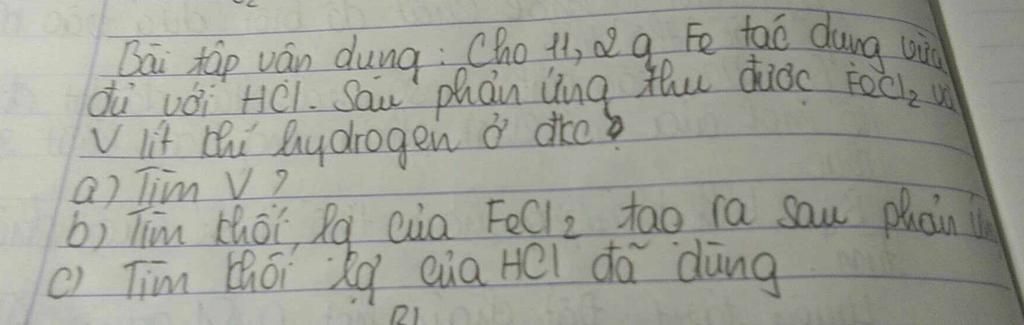 Bài tập vận dụng: Cho 11,2 g Fe tác dụng vừa
đủ với HCl. Sau phản ứng thu được FeCl2 và
V lít khí hydrogen ở đkc?
a) Tìm V?
b) Tìm khối lg của FeCl2 tạo ra sau phản ứng
c) Tìm khối lg của HCl đã dùng